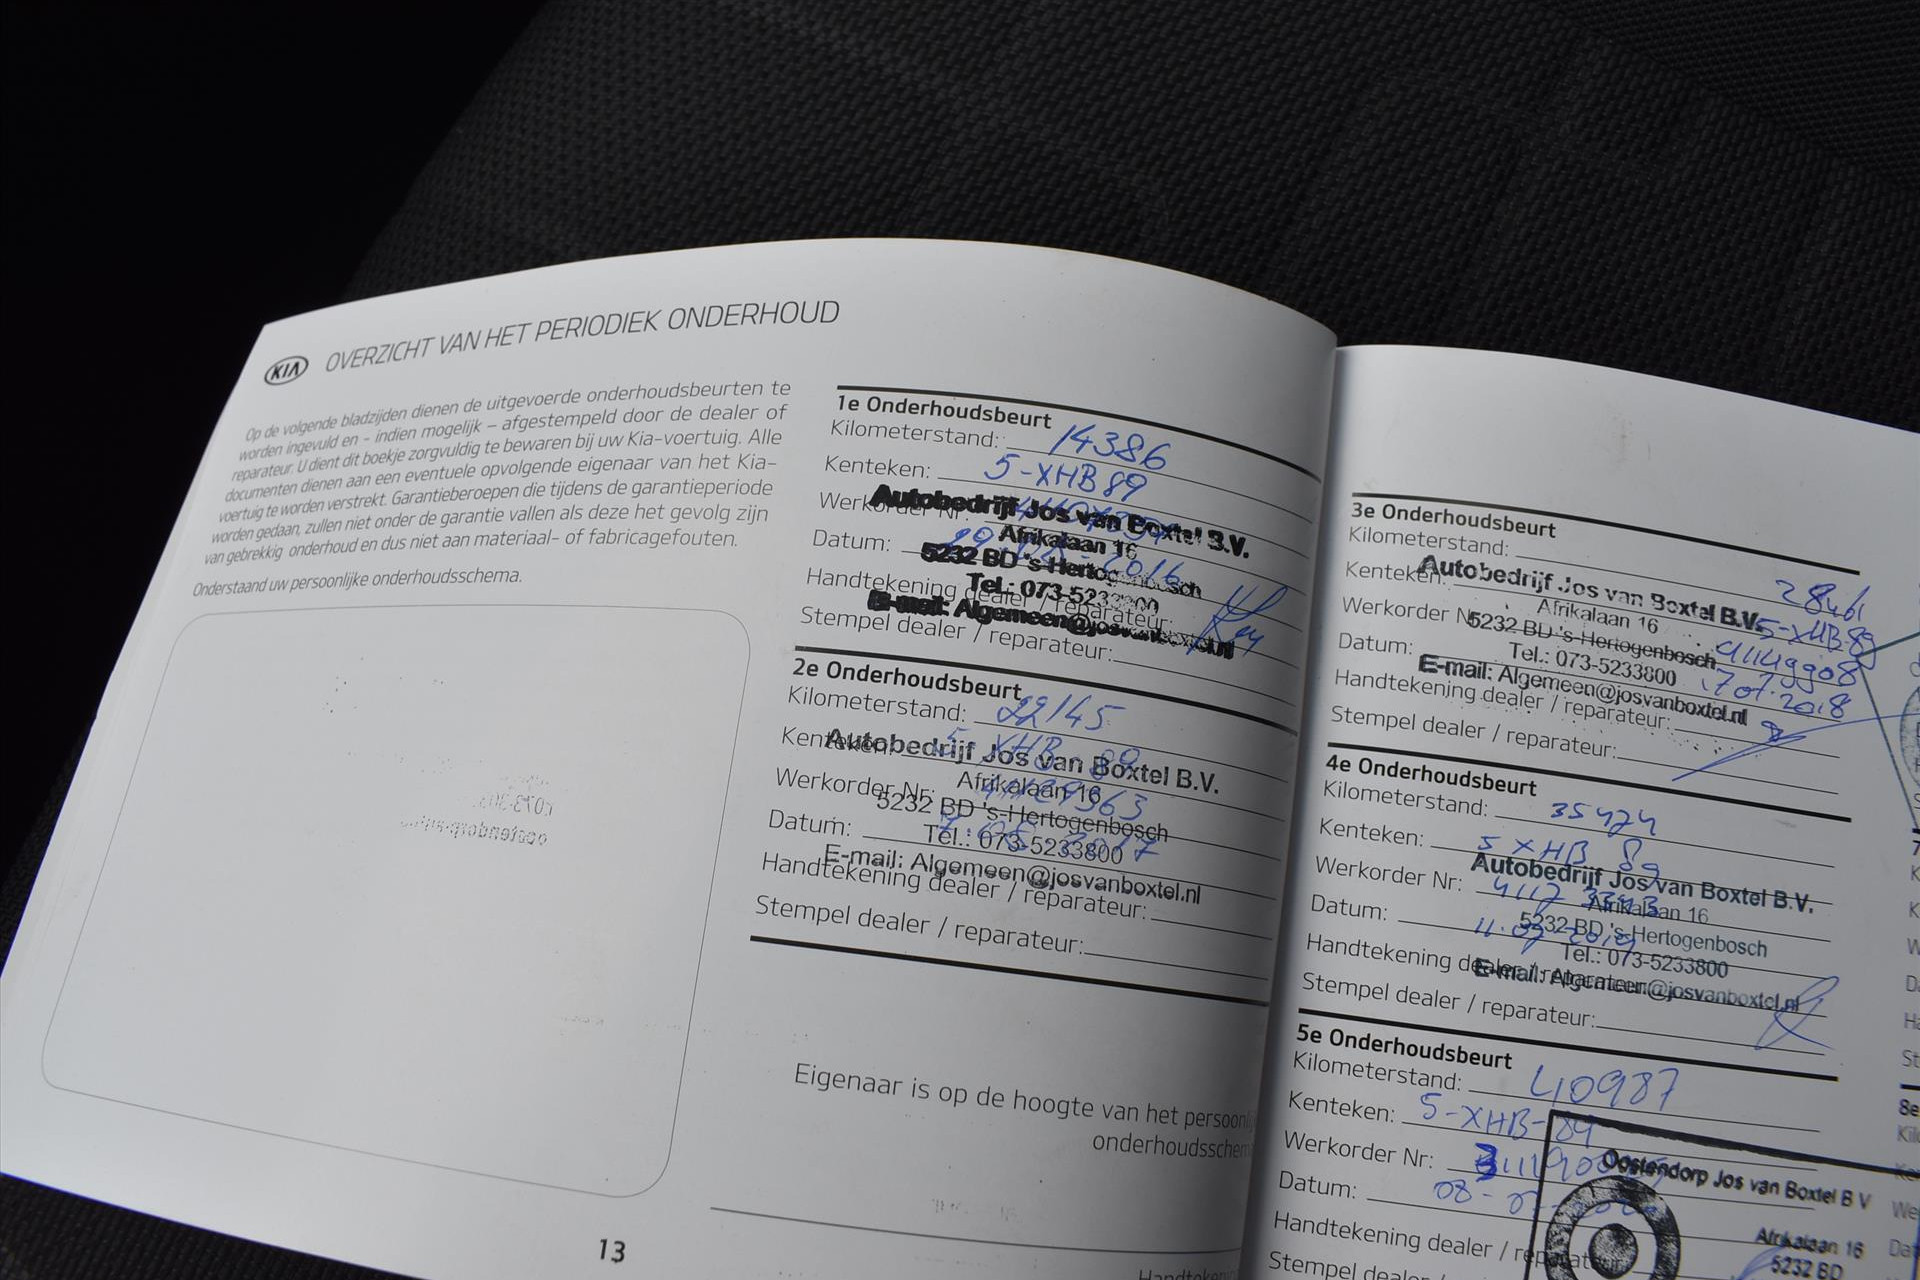 KIA OVERZICHT VAN HET PERIODIEK ONDERHOUD
Op de volgende bladzijden dienen de uitgevoerde onderhoudsbeurten te
worden ingevuld en - indien mogelijk - afgestempeld door de dealer of
reparateur. U dient dit boekje zorgvuldig te bewaren bij uw Kia-voertuig. Alle
documenten dienen aan een eventuele opvolgende eigenaar van het Kia-
voertuig te worden verstrekt. Garantieberoepen die tijdens de garantieperiode
worden gedaan, zullen niet onder de garantie vallen als deze het gevolg zijn
van gebrekkig onderhoud en dus niet aan materiaal- of fabricagefouten.
Onderstaand uw persoonlijke onderhoudsschema.
13
1e Onderhoudsbeurt
Kilometerstand: 14386
Kenteken: 5-XHB 89
Werkorder Nr:
Datum: 2016
Handtekening dealer / reparateur:
Stempel dealer / reparateur:
Autobedrijf Jos van Boxtel B.V.
Afrikalaan 16
5232 BD 's-Hertogenbosch
Tel.: 073-5233800
E-mail: Algemeen@josvanboxtel.nl
2e Onderhoudsbeurt
Kilometerstand: 22145
Kenteken: 5-XHB-89
Werkorder Nr:
Datum: 2017
Handtekening dealer / reparateur:
Stempel dealer / reparateur:
Autobedrijf Jos van Boxtel B.V.
Afrikalaan 16
5232 BD 's-Hertogenbosch
Tel.: 073-5233800
E-mail: Algemeen@josvanboxtel.nl
Eigenaar is op de hoogte van het
3e Onderhoudsbeurt
Kilometerstand: 28461
Kenteken: 5-XHB-89
Werkorder Nr: 41149908
Datum: 07.2018
Handtekening dealer / reparateur:
Stempel dealer / reparateur:
Autobedrijf Jos van Boxtel B.V.
Afrikalaan 16
5232 BD 's-Hertogenbosch
Tel.: 073-5233800
E-mail: Algemeen@josvanboxtel.nl
4e Onderhoudsbeurt
Kilometerstand: 35424
Kenteken: 5 XHB 89
Werkorder Nr:
Datum: 2019
Handtekening dealer / reparateur:
Stempel dealer / reparateur:
Autobedrijf Jos van Boxtel B.V.
Afrikalaan 16
5232 BD 's-Hertogenbosch
Tel.: 073-5233800
E-mail: Algemeen@josvanboxtel.nl
5e Onderhoudsbeurt
Kilometerstand: 40987
Kenteken: 5-XHB-89
Werkorder Nr:
Datum: 08-
Handtekening dealer / reparateur:
Stempel
Oostendorp Jos van Boxtel B V
Afrikalaan 16
5232 BD
8e